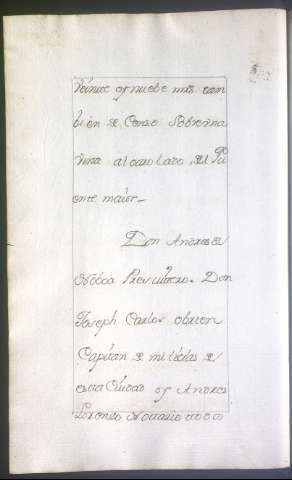 veinte y nuebe mrs. tam
bien de Censo sobre una
viña al otro lado del Pu
ente maior.
Don Andres de
Noboa Presvitero. Don
Joseph Carlos obrien
Capitan de milicias de
esta Ciudad y Andres
Lorenzo Nottario todos